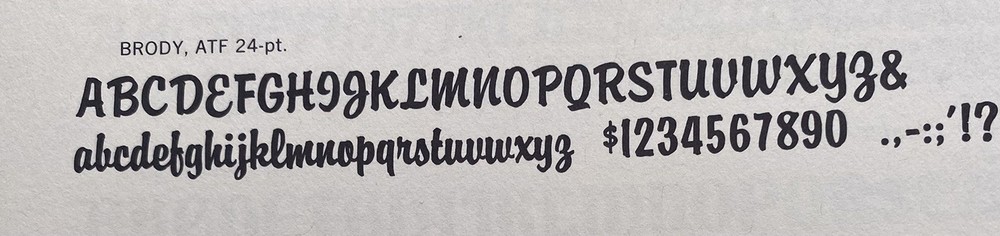 BRODY, ATF 24-pt.
ABCDEFGHIJKLMNOPQRSTUVWXYZ&
abcdefghijklmnopqrstuvwxyz $1234567890 .,-:;'!?